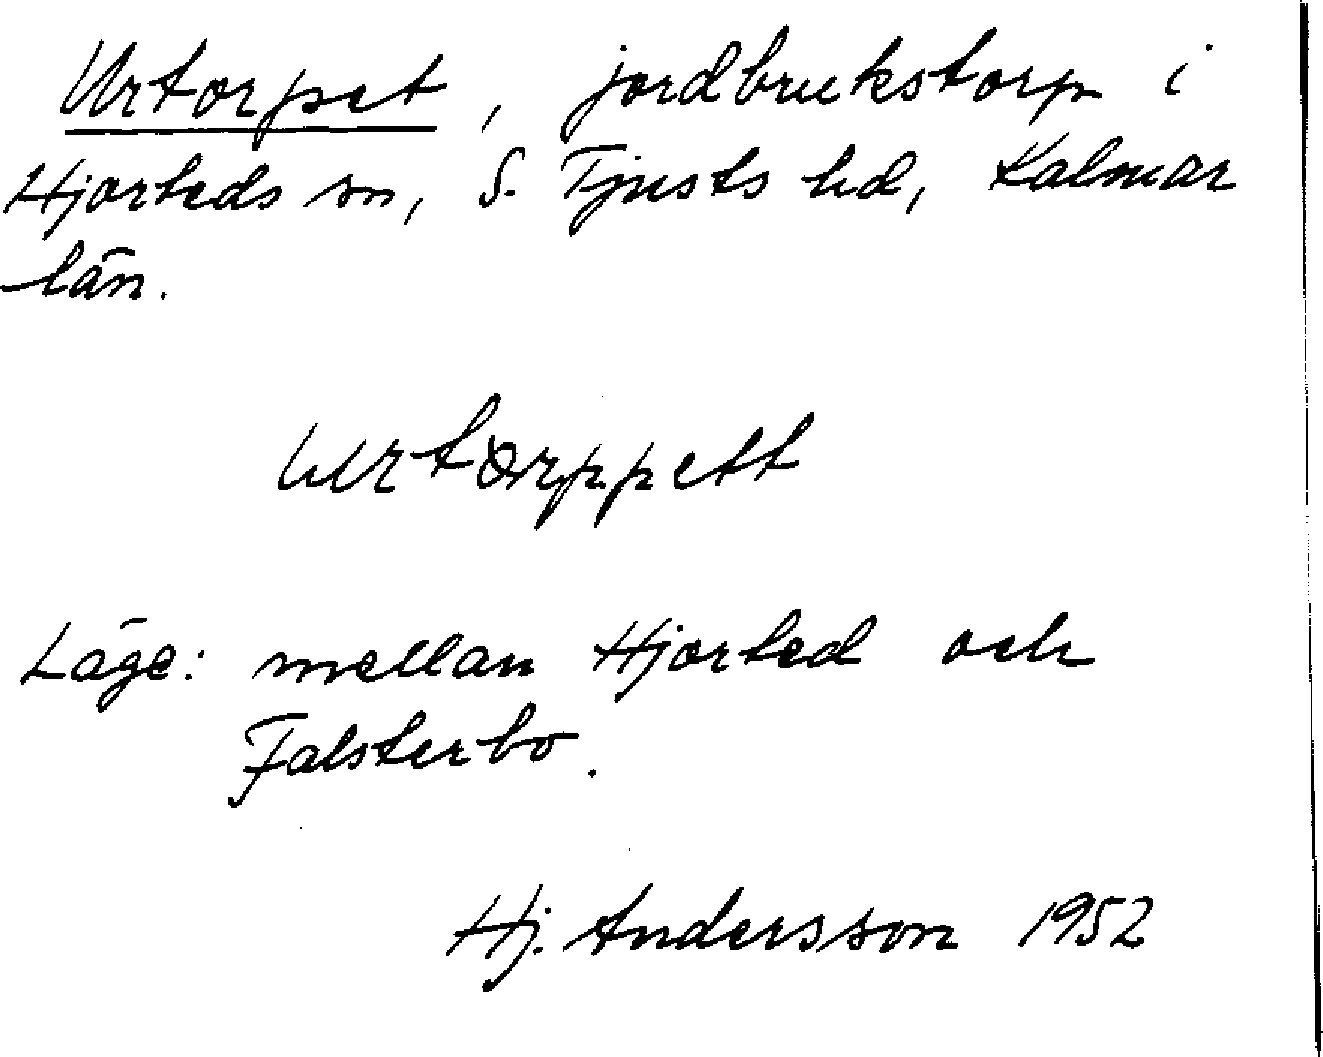 Urtorpet, jordbrukstorp i
Hjorteds sn, S. Tjusts hd, Kalmar
län.
urtorppett
Läge: mellan Hjorted och
Falsterbo.
Hj. Andersson 1952